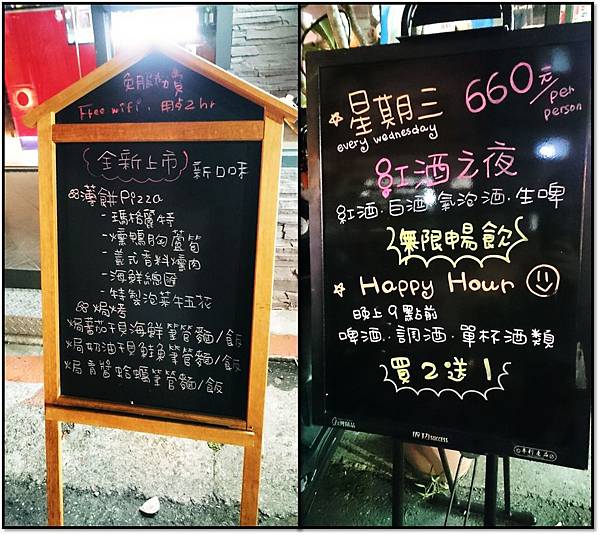 免服務費
Free wifi. 用餐2hr
全新上市 新口味
薄餅Pizza
-瑪格麗特
-燻鴨胸蘆筍
-義式香料爐肉
-海鮮總匯
-特製泡菜牛五花
焗烤
焗蕃茄干貝海鮮筆管麵/飯
焗奶油干貝鮭魚筆管麵/飯
焗青醬蛤蠣筆管麵/飯
星期三 660元/per person
every wednesday
紅酒之夜
紅酒.白酒.氣泡酒.生啤
無限暢飲
Happy Hour
晚上9點前
啤酒.調酒.單杯酒類
買2送1
success